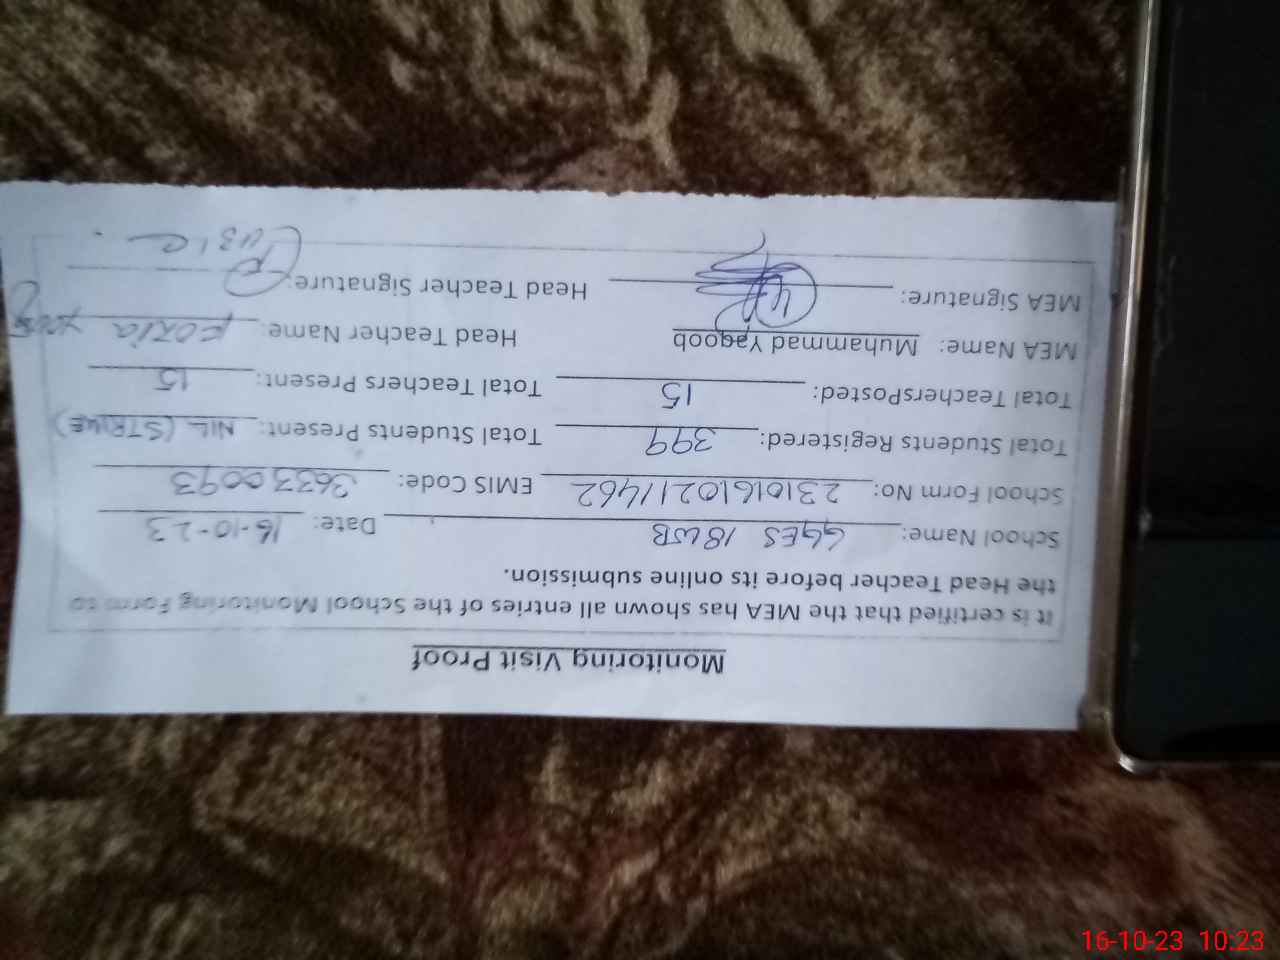 Monitoring Visit Proof
It is certified that the MEA has shown all entries of the School Monitoring Form to
the Head Teacher before its online submission.
School Name: GGES 18WB Date: 16-10-23
School Form No: 23101610211462 EMIS Code: 36330093
Total Students Registered: 399 Total Students Present: NIL (STRIKE)
Total TeachersPosted: 15 Total Teachers Present: 15
MEA Name: Muhammad Yaqoob Head Teacher Name: Fozia
MEA Signature: Head Teacher Signature:
16-10-23 10:23